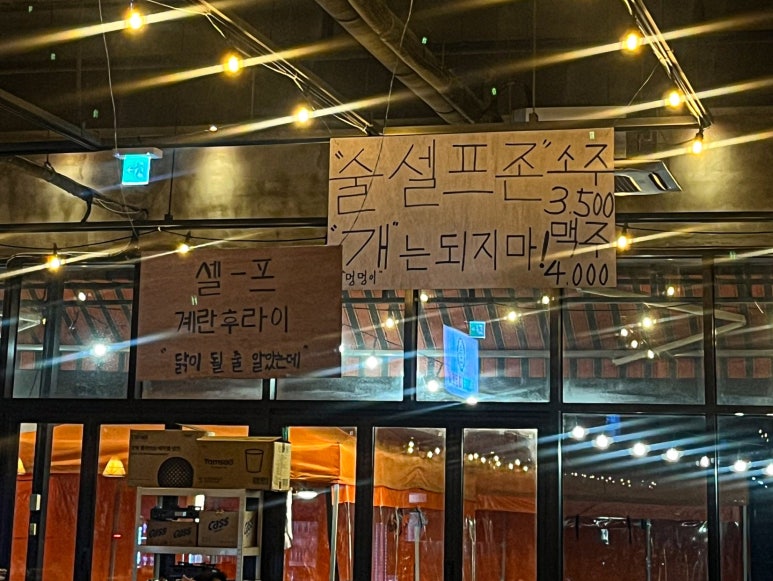 "술셀프존" 소주
3.500
"개"는되지마! 맥주
"멍멍이"
4.000
셀-프
계란후라이
"닭이 될 줄 알았는데"
Tomsod
Cass
Cass